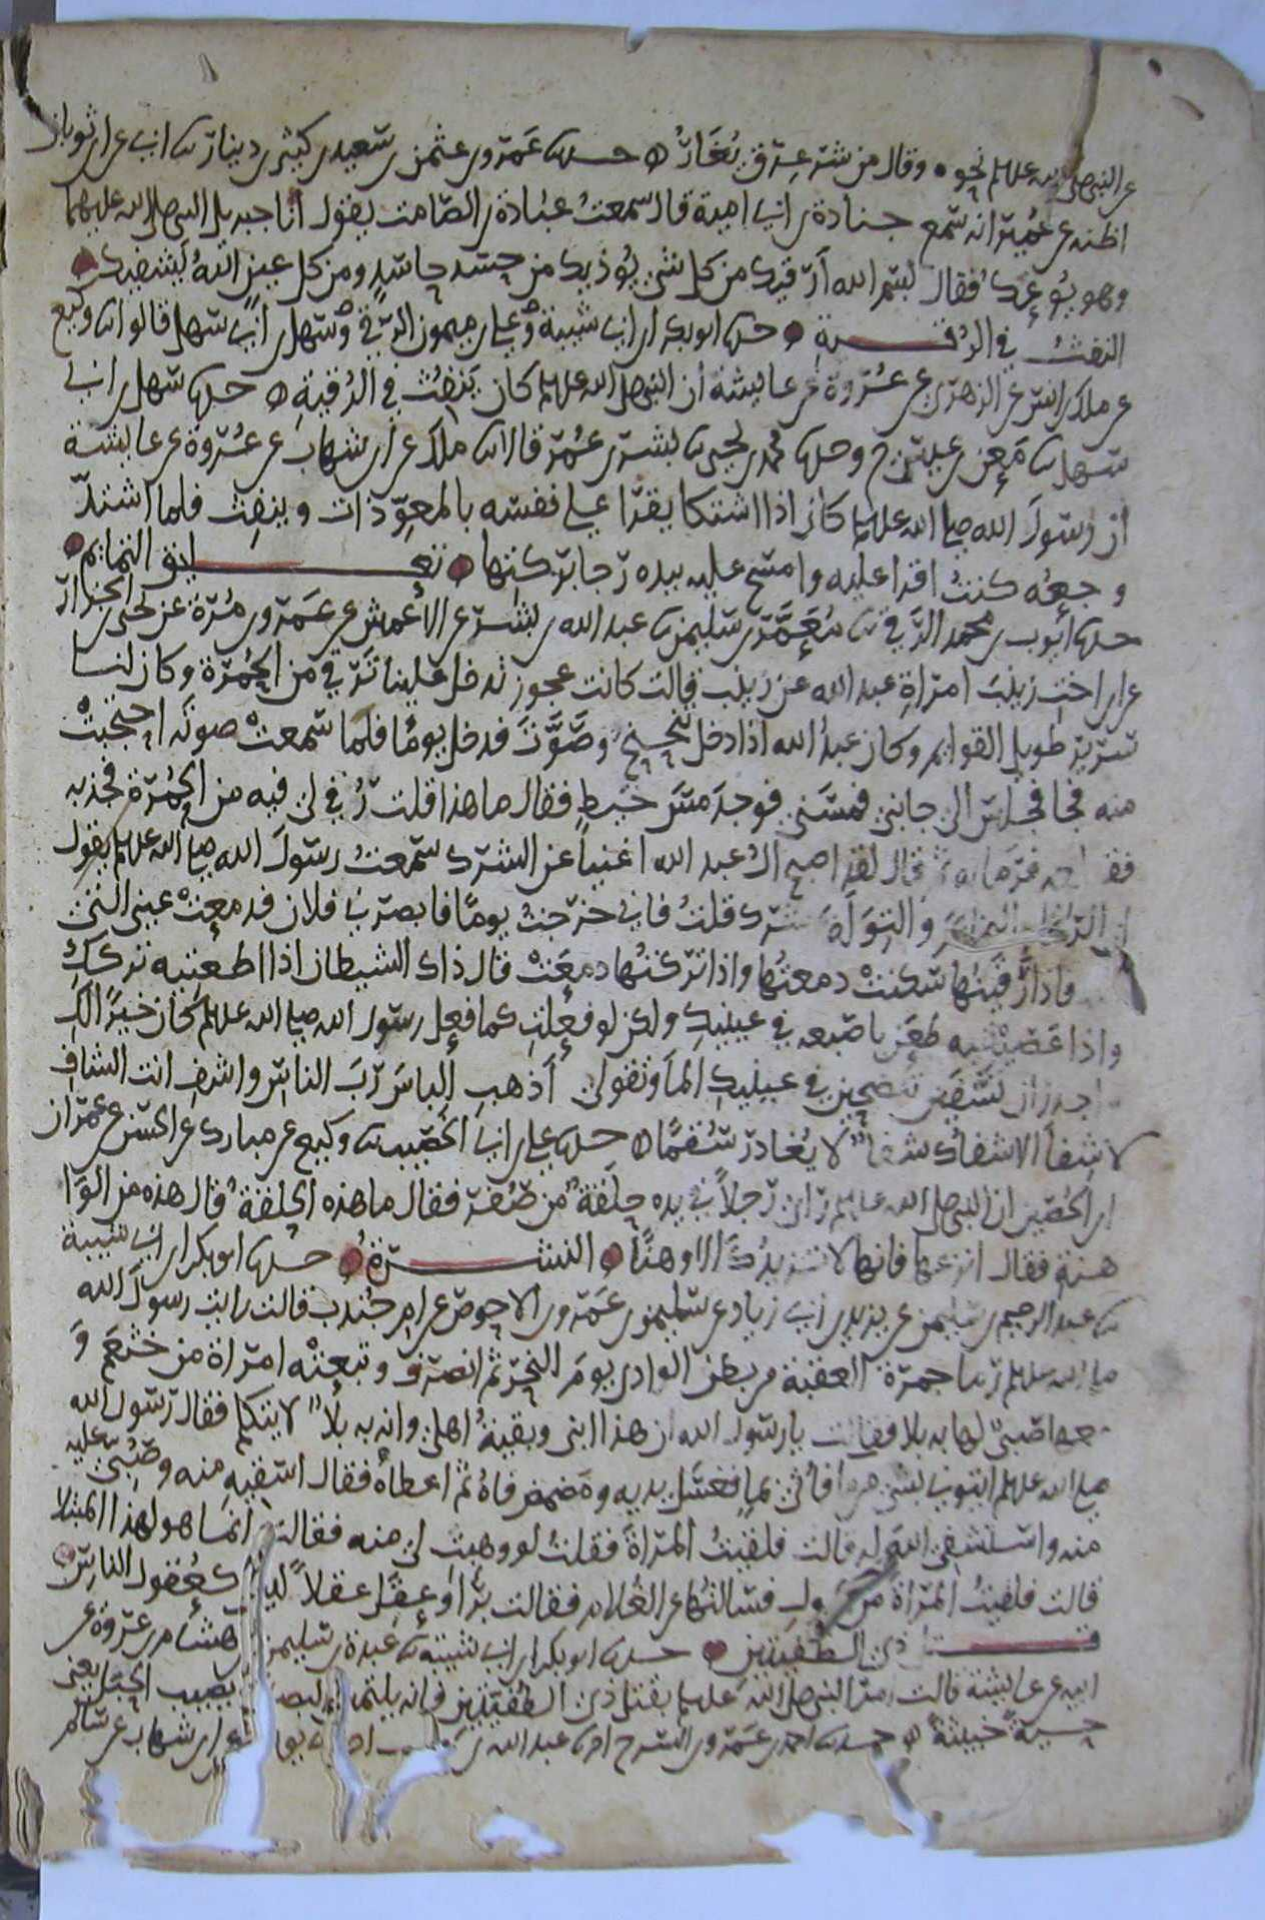 عن النبي صلى الله عليه وسلم نحوه وقال من شر عرق يعار حدثنا عمرو بن عثمن بن سعيد بن كثير بن دينار ثنا ابي عن ابن ثوبان
اظنه عن عمير انه سمع جنادة بن ابي امية قال سمعت عبادة بن الصامت يقول اتا جبريل النبي صلى الله عليهما
وهو يوعك فقال بسم الله ارقيك من كل شي يوذيك من حسد حاسد ومن كل عين الله يشفيك
النفث في الرقية حدثنا ابو بكر ابن ابي شيبة وعلي بن ميمون الرقي وسهل بن ابي سهل قالوا ثنا وكيع
عن ملك بن انس عن الزهري عن عروة عن عايشة ان النبي صلى الله عليه وسلم كان ينفث في الرقية حدثنا سهل بن ابي
سهل ثنا معن بن عيسى ح وحدثنا محمد بن يحيى ثنا بشر بن عمر قالا ثنا ملك عن ابن شهاب عن عروة عن عايشة
ان رسول الله صلى الله عليه وسلم كان اذا اشتكا يقرا على نفسه بالمعوذات وينفث فلما اشتد
وجعه كنت اقرا عليه وامسح عليه بيده رجا بركتها تعليق التمايم
حدثنا أيوب بن محمد الرقي ثنا معمر بن سليمن ثنا عبد الله بن بشر عن الأعمش عن عمرو بن مرة عن يحيى بن الجزار
عن ابن اخت زينب امراة عبد الله عن زينب قالت كانت عجوز تدخل علينا ترقي من الحمرة وكان لنا
سرير طويل القوايم وكان عبد الله اذا دخل تنحنح وصوت فدخل يوما فلما سمعت صوته احتجبت
منه فجا فجلس الى جانبي فمسني فوجد مس خيط فقال ما هذا فقلت رقي لي فيه من الحمرة فجذبه
فقطعه فرما به ثم قال لقد اصبح ال عبد الله اغنيا عن الشرك سمعت رسول الله صلى الله عليه وسلم يقول
ان الرقا والتمايم والتولة شرك قلت فاني خرجت يوما فابصرني فلان فدمعت عيني التي
فاذا رقيتها سكنت دمعتها واذا تركتها دمعت قال ذاك الشيطان اذا اطعتيه تركك
واذا عصيتيه طعن باصبعه في عينيك ولكن لو فعلت كما فعل رسول الله صلى الله عليه وسلم كان خيرا لك
واجدر ان تشفين تنضحين في عينيك الما وتقولي أذهب الباس رب الناس واشف انت الشاف
لا شفا الا شفاك شفا لا يغادر سقما حدثنا علي بن ابي الخصيب ثنا وكيع عن مبارك عن الحسن عن عمران
ابن الحصين ان النبي صلى الله عليه وسلم راى رجلا في يده حلقة من صفر فقال ما هذه الحلقة قال هذه من الوا
هنة فقال انزعها فانها لا تزيدك الا وهنا النشرة حدثنا ابو بكر ابن ابي شيبة
ثنا عبد الرحيم بن سليمن عن يزيد بن ابي زياد عن سليمن بن عمرو بن الاحوص عن ام جندب قالت رايت رسول الله
صلى الله عليه وسلم رما جمرة العقبة من بطن الوادي يوم النحر ثم انصرف وتبعته امراة من خثعم و
معها صبي لها به بلا فقالت يا رسول الله ان هذا ابني وبقية اهلي وانه به بلا لا يتكلم فقال رسول الله
صلى الله عليه وسلم ايتوني بشي من ما فاتي بما فغسل يديه ومضمض فاه ثم اعطاه فقال اسقيه منه وصبي عليه
منه واستشفي الله له قالت فلقيت المراة فقلت لو وهبت لي منه فقالت انما هو لهذا المبتلا
قالت فلقيت المراة من الحول فسالتها عن الغلام فقالت برا وعقل عقلا ليس كعقول الناس
قتل ذي الطفيتين حدثنا ابو بكر ابن ابي شيبة ثنا عبدة بن سليمن عن هشام بن عروة عن
ابيه عن عايشة قالت امر النبي صلى الله عليه وسلم بقتل ذي الطفيتين فانه يلتمس البصر ويصيب الحبل يعني
حية خبيثة حدثنا احمد بن عمرو بن السرح ثنا عبد الله بن وهب عن ابن شهاب عن سالم